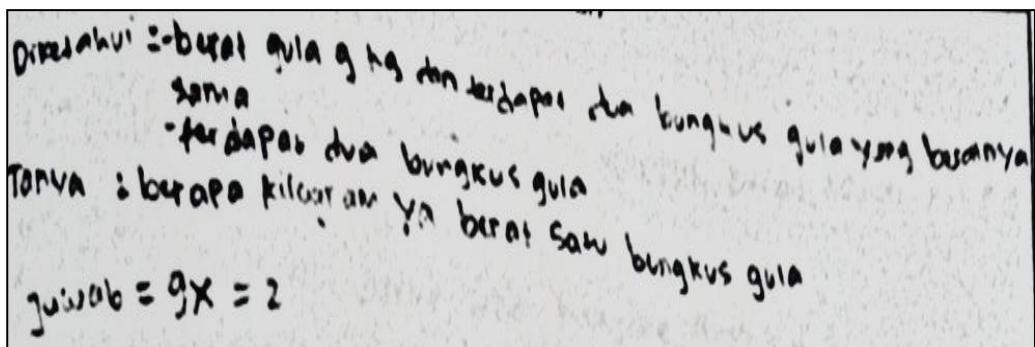 Diketahui :- berat gula 9 kg dan terdapat dua bungkus gula yang beratnya
sama
- terdapat dua bungkus gula
Tanya : berapa kilogram ya berat satu bungkus gula
Juwab = 9x = 2